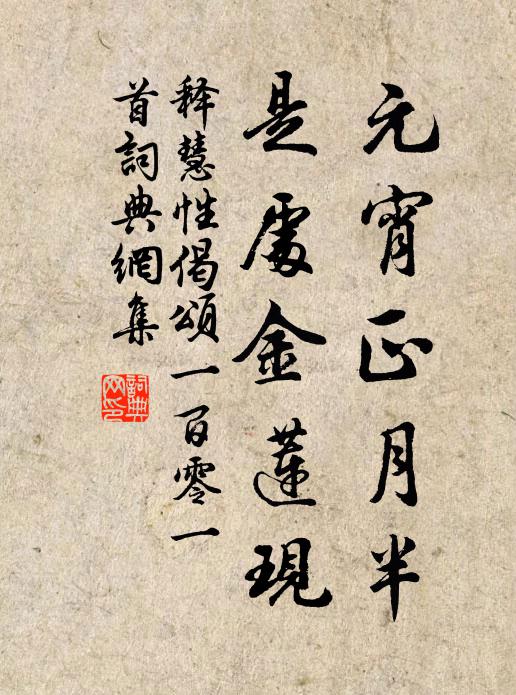 元宵正月半
是處金蓮現
釋慧性偈頌一百零一
首詞典網集
詞典網印